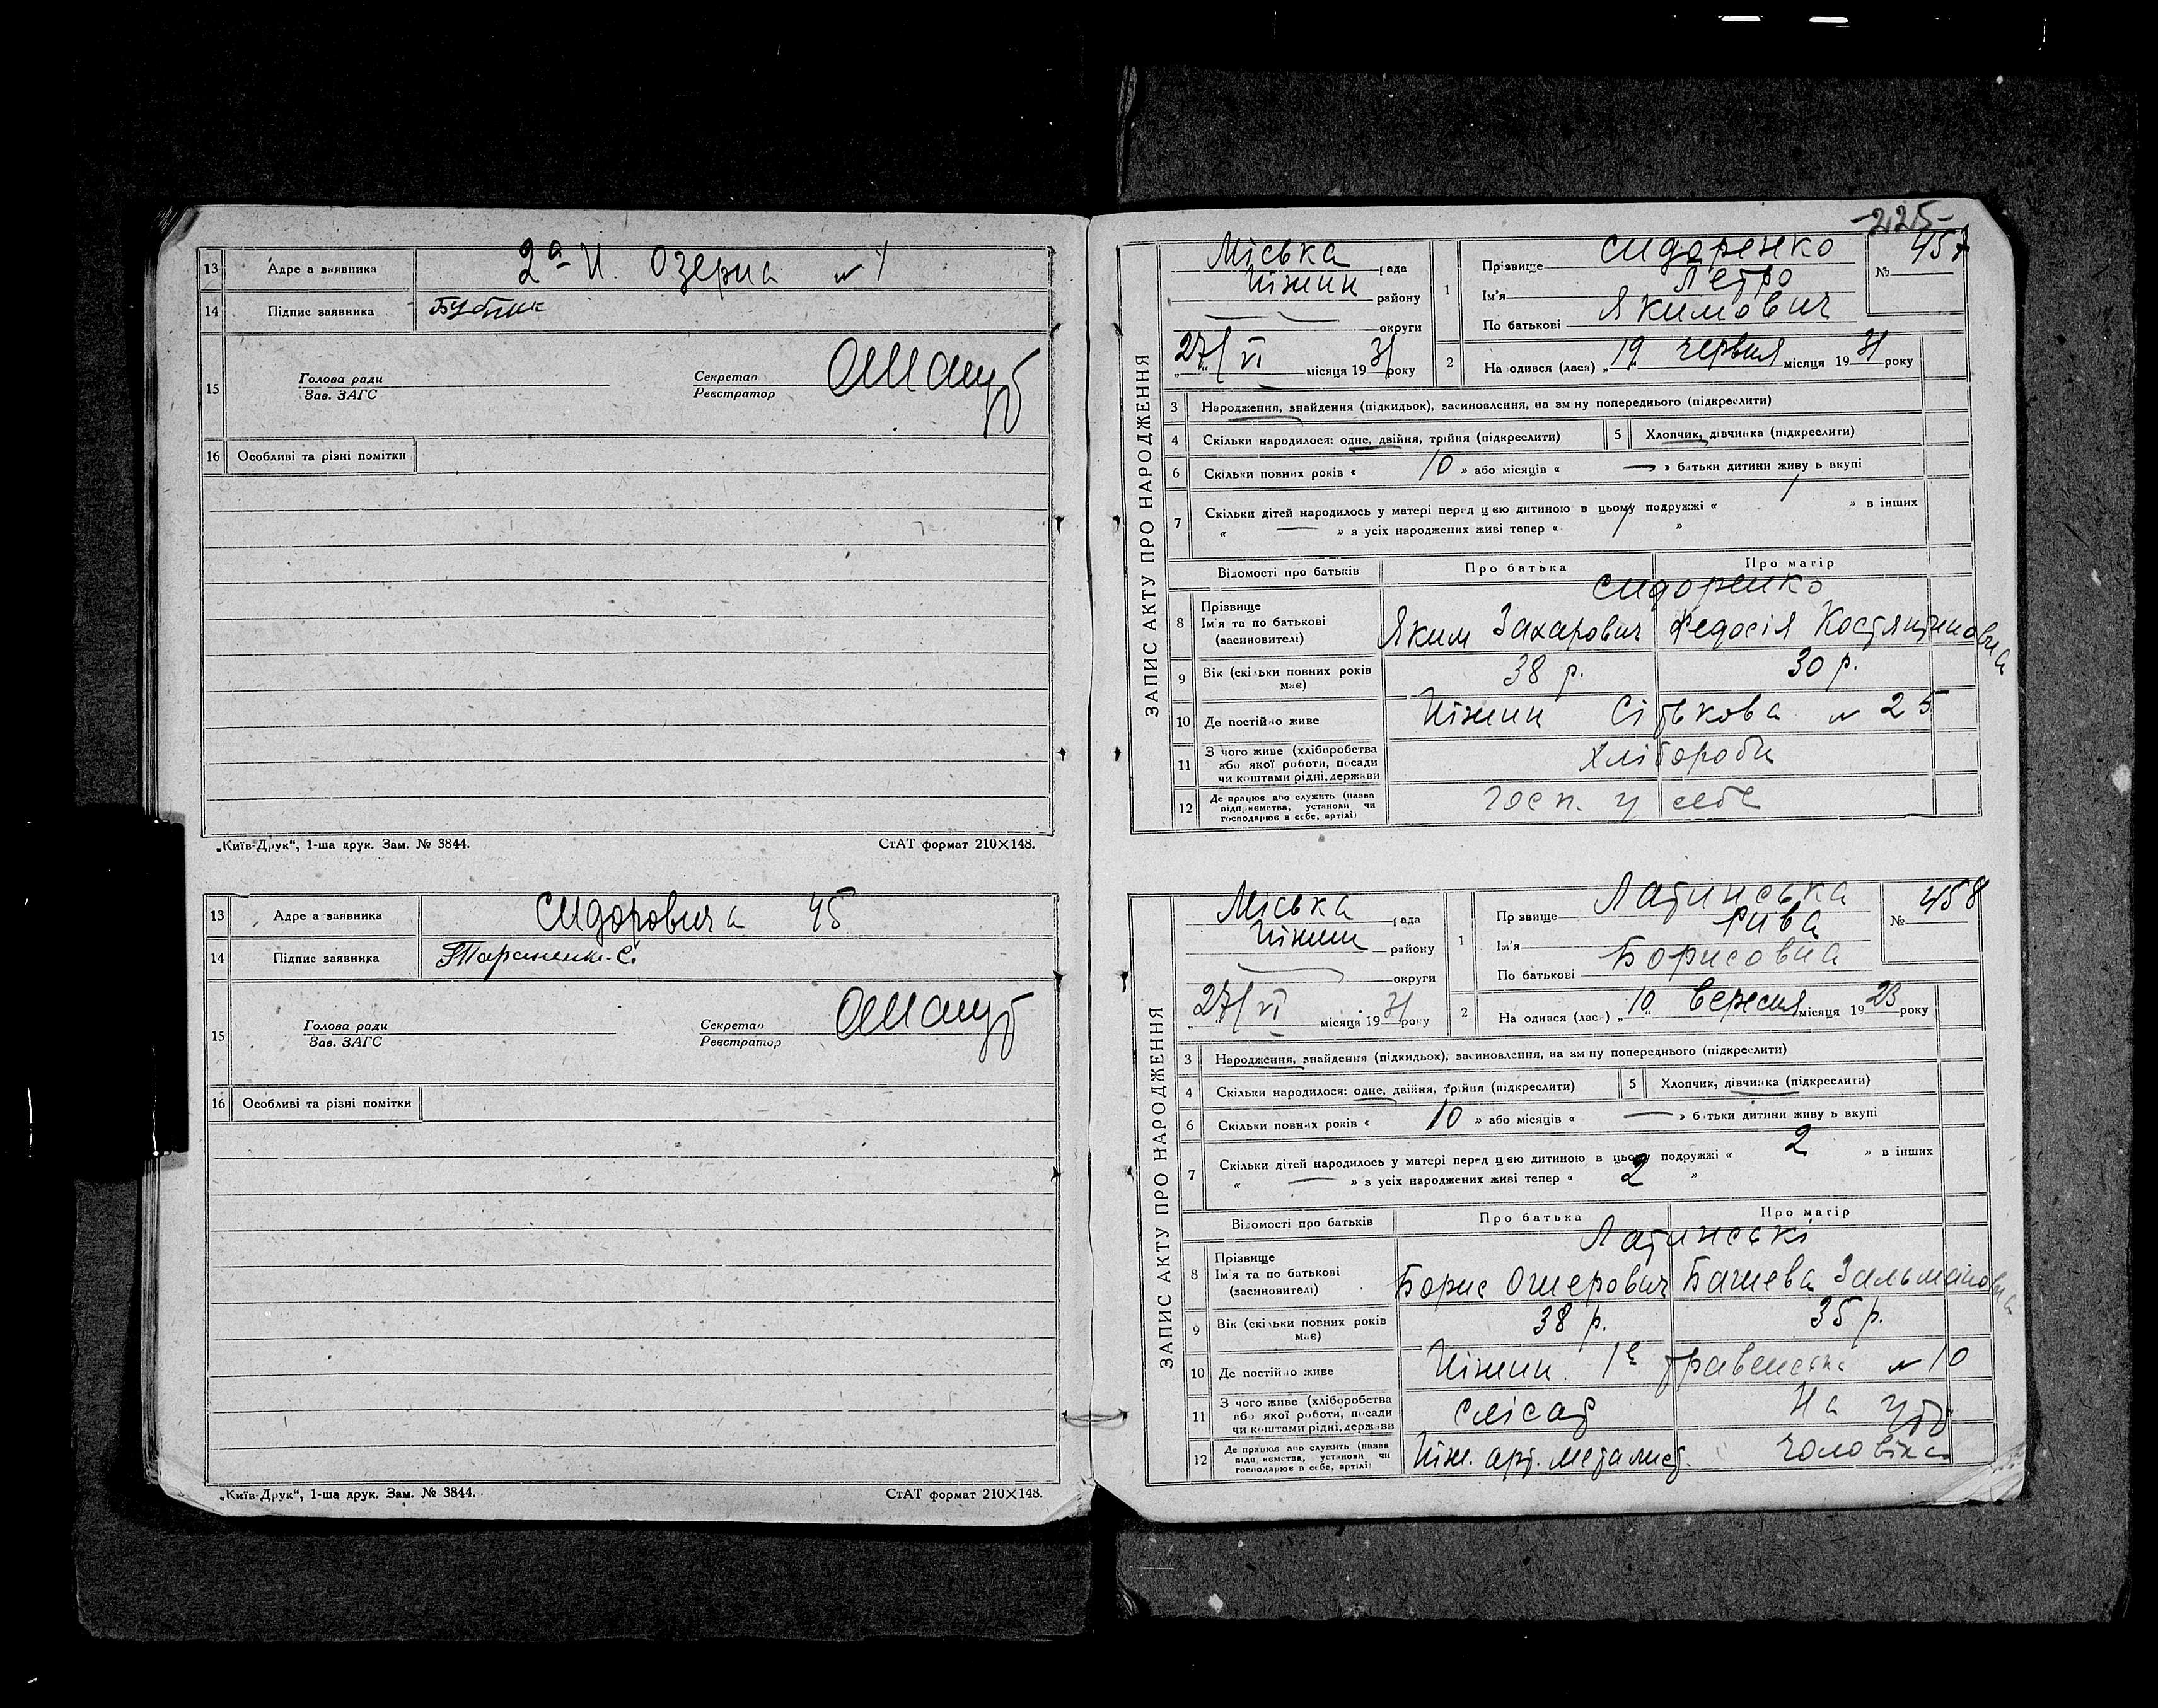 13 Адре а заявника 2а Н. Озерна № 1
14 Підпис заявника Бублик
15 Голова ради
Зав. ЗАГС
Секретар
Реєстратор
16 Особливі та різні помітки
„Київ-Друк“, 1-ша друк. Зам. № 3844. СтАТ формат 210×148.
13 Адре а заявника Сидоровича 45
14 Підпис заявника
15 Голова ради
Зав. ЗАГС
Секретар
Реєстратор
16 Особливі та різні помітки
„Київ-Друк“, 1-ша друк. Зам. № 3844. СтАТ формат 210×148.
-225-
ЗАПИС АКТУ ПРО НАРОДЖЕННЯ
Міська рада
Ніжин району
округи
„27“ VI місяця 1931 року
1 Прізвище Сидоренко
Ім'я Петро
По батькові Якимович
№ 457
2 На одився (лася) „19“ червня місяця 1931 року
3 Народження, знайдення (підкидьок), засиновлення, на зм ну попереднього (підкреслити)
4 Скільки народилося: одне, двійня, трійня (підкреслити) 5 Хлопчик, дівчинка (підкреслити)
6 Скільки повних років « 10 » або місяців « — » батьки дитини живу ь вкупі
7 Скільки дітей народилось у матері перед цією дитиною в цьому подружжі « 1 » в інших
« — » з усіх народжених живі тепер « 1 »
Відомості про батьків Про батька Про матір
8 Прізвище
Ім'я та по батькові
(засиновителі)
Сидоренко
Яким Захарович Федосія Костянтиновна
9 Вік (скільки повних років має) 38 р. 30 р.
10 Де постійно живе Ніжин Сітькова № 25
11 З чого живе (хліборобства або якої роботи, посади чи коштами рідні, держави Хлібороби
12 Де працює або служить (назва підприємства, установи чи господарює в себе, артілі) госп. у себе
ЗАПИС АКТУ ПРО НАРОДЖЕННЯ
Міська рада
Ніжин району
округи
„27“ VI місяця 1931 року
1 Пр звище Латинська
Ім'я Рива
По батькові Борисовна
№ 458
2 На одився (лася) „10“ вересня місяця 1923 року
3 Народження, знайдення (підкидьок), засиновлення, на зм ну попереднього (підкреслити)
4 Скільки народилося: одне, двійня, трійня (підкреслити) 5 Хлопчик, дівчинка (підкреслити)
6 Скільки повних років « 10 » або місяців « — » батьки дитини живу ь вкупі
7 Скільки дітей народилось у матері перед цією дитиною в цьому подружжі « 2 » в інших
« — » з усіх народжених живі тепер « 2 »
Відомості про батьків Про батька Про матір
8 Прізвище
Ім'я та по батькові
(засиновителі)
Латинські
Борис Ошерович Башева Зальмановна
9 Вік (скільки повних років має) 38 р. 35 р.
10 Де постійно живе Ніжин № 10
11 З чого живе (хліборобства або якої роботи, посади чи коштами рідні, держави Слісар На утр
12 Де працює або служить (назва підприємства, установи чи господарює в себе, артілі) Ніж. арт. металист. чоловіка